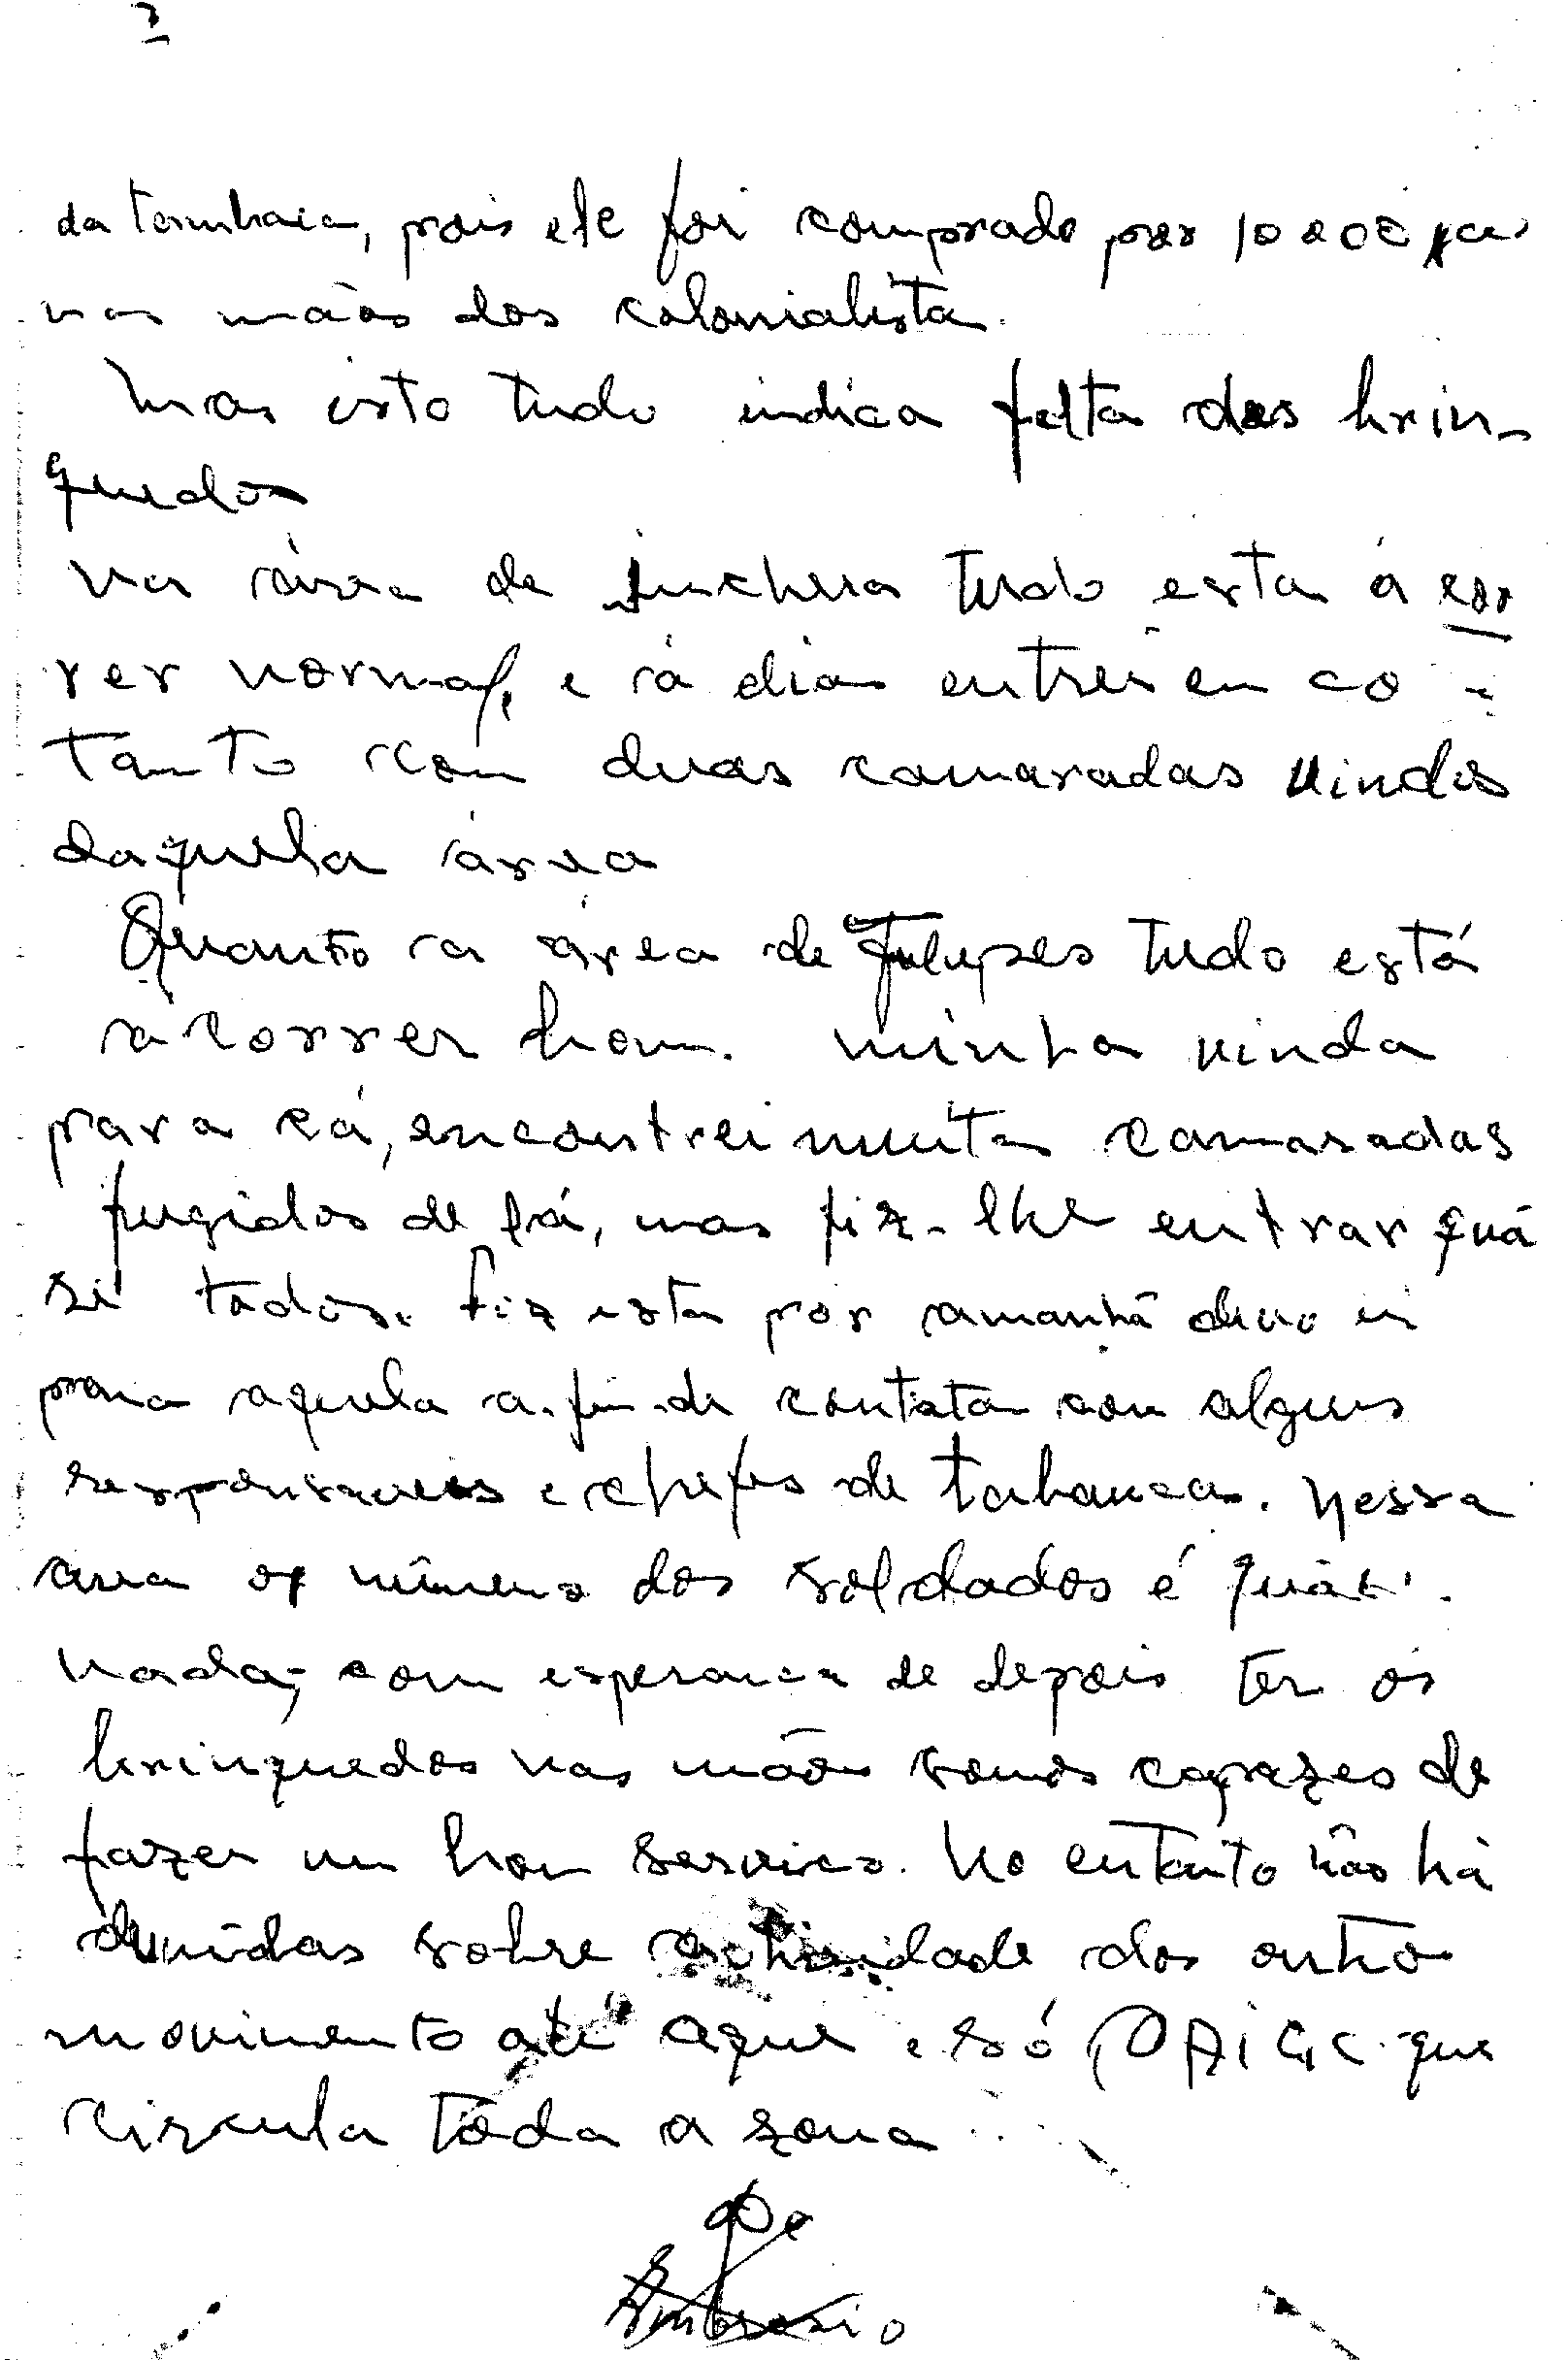 2
da tambaia, pois ele foi comprado por 10000 ja
nas mãos dos colonialista.
Mas isto tudo indica falta dos brin-
quedos
Na área de Suchera tudo esta á cor
rer normal, e á dias entrei em co-
tanto com duas camaradas vindos
daquela área
Quanto a área de Felupes tudo está
á correr bom. Minha vinda
para cá, encontrei muita camaradas
fugidos de lá, mas fiz-lhe entrar quá
si todos. Fiz esta por amanhã devo ir
para aquela a.fim.de contata com alguns
responsaveis e chefes de tabanca. Nessa
area o número dos soldados é quási.
nada, com esperanca de depois ter os
brinquedos nas mãos somos capazes de
fazer um bom servico. No entanto não há
duvidas sobre actividade dos outro
movimento até aqui e só PAIGC que
circula tôda a zona
De
Ambrosio